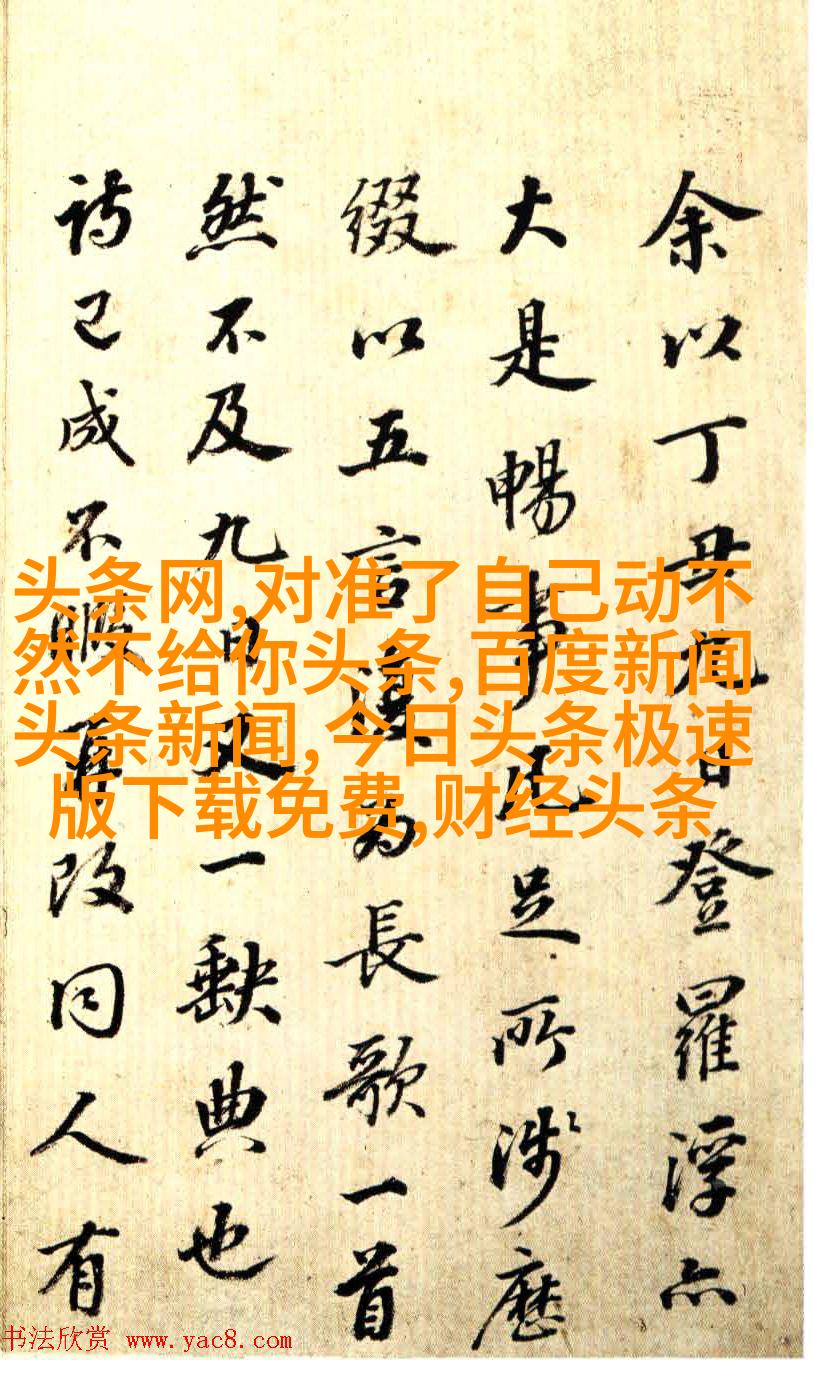 余以丁丑九日登羅浮亦
大是暢事凡足所涉歷
綴以五言为長歌一首
然不及九日又一缺典也
詩已成不暇再改同人有
头条网,对准了自己动不
然不给你头条,百度新闻
头条新闻,今日头条极速
版下载免费,财经头条
书法欣赏 www.yac8.com